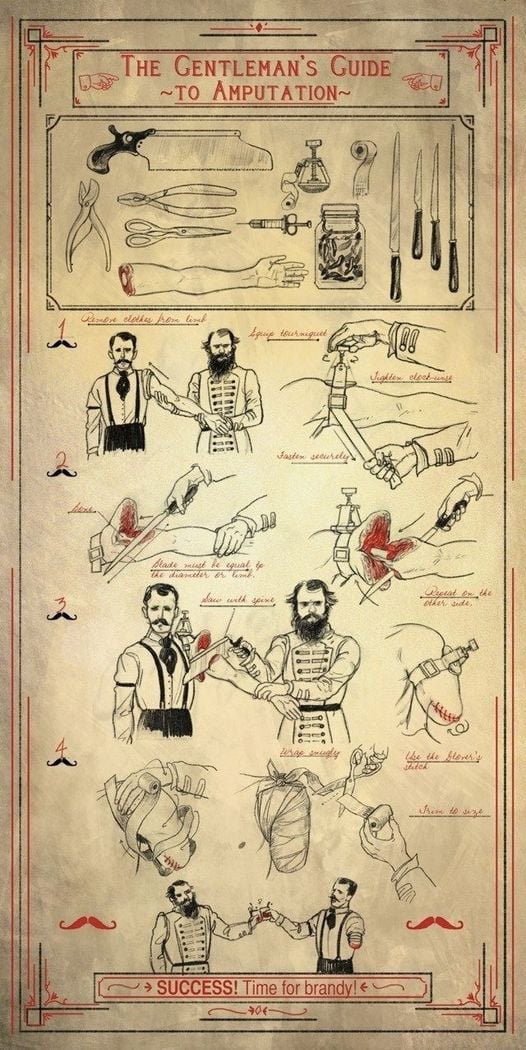 THE GENTLEMAN'S GUIDE
~TO AMPUTATION~
1
Remove clothes from limb
Equip tourniquet
Tighten clock-wise
Fasten securely
2
Bone
Blade must be equal to
the diameter or limb.
Repeat on the
other side.
3
Saw with spine
Use the Glover's
stitch
4
Wrap snugly
Trim to size
SUCCESS! Time for brandy!